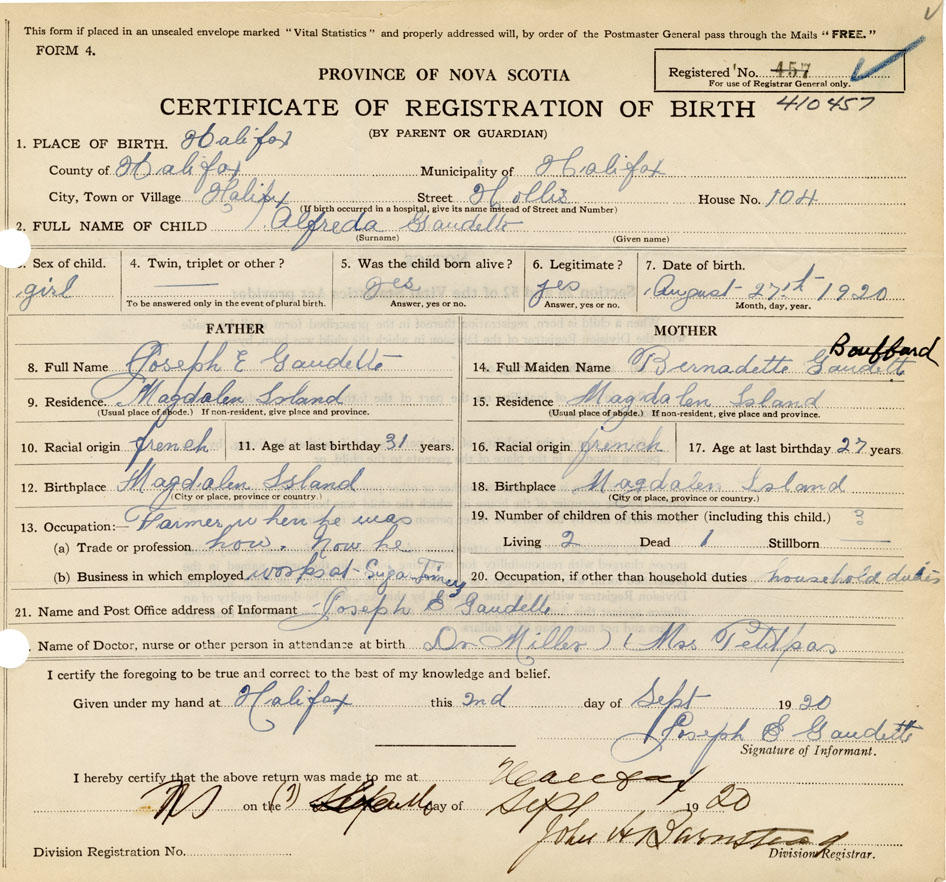 This form if placed in an unsealed envelope marked "Vital Statistics" and properly addressed will, by order of the Postmaster General pass through the Mails "FREE."
FORM 4.
PROVINCE OF NOVA SCOTIA
Registered No. 457
For use of Registrar General only.
CERTIFICATE OF REGISTRATION OF BIRTH 410457
(BY PARENT OR GUARDIAN)
1. PLACE OF BIRTH. Halifax
County of Halifax Municipality of Halifax
City, Town or Village Halifax Street Hollis House No. 104
(If birth occurred in a hospital, give its name instead of Street and Number)
2. FULL NAME OF CHILD Alfreda Gaudette
(Surname) (Given name)
Sex of child. 4. Twin, triplet or other? 5. Was the child born alive? 6. Legitimate? 7. Date of birth.
girl yes yes August 27th 1920
To be answered only in the event of plural birth. Answer, yes or no. Answer, yes or no. Month, day, year.
FATHER MOTHER
8. Full Name Joseph E Gaudette 14. Full Maiden Name Bernadette Gaudette Bouffard
9. Residence. Magdalen Island 15. Residence Magdalen Island
(Usual place of abode.) If non-resident, give place and province. (Usual place of abode.) If non-resident, give place and province.
10. Racial origin french 11. Age at last birthday 31 years. 16. Racial origin french 17. Age at last birthday 27 years
12. Birthplace Magdalen Island 18. Birthplace Magdalen Island
(City or place, province or country.) (City or place, province or country.)
13. Occupation:— Farmer when he was 19. Number of children of this mother (including this child.) 3
(a) Trade or profession how. Now he Living 2 Dead 1 Stillborn
(b) Business in which employed works at Sugar 20. Occupation, if other than household duties household duties
21. Name and Post Office address of Informant Joseph E Gaudette
. Name of Doctor, nurse or other person in attendance at birth Dr Miller) (Mss Petitpas
I certify the foregoing to be true and correct to the best of my knowledge and belief.
Given under my hand at Halifax this 2nd day of Sept 1920
Joseph E Gaudette
Signature of Informant.
I hereby certify that the above return was made to me at
on the (7) day of Sept 1920
John H Barnstead
Division Registration No. Division Registrar.